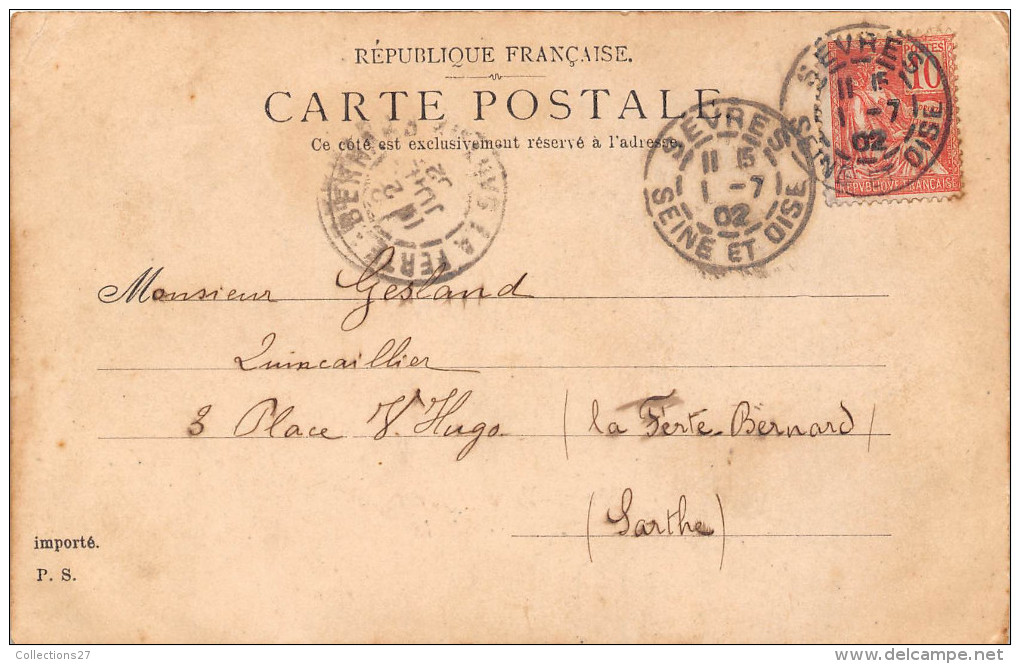 RÉPUBLIQUE FRANÇAISE.
CARTE POSTALE
Ce côté est exclusivement réservé à l'adresse.
SÈVRES
11 15
1 -7
02
SEINE ET OISE
SÈVRES
11 15
1 -7
02
OISE
POSTES
10
REPVBLIQVE FRANÇAISE
LA FERTE-BERNARD
Monsieur Gesland
Quincaillier
3 Place V. Hugo. (la Ferte-Bernard)
(Sarthe)
importé.
P. S.
-Collections27
delcampe.net